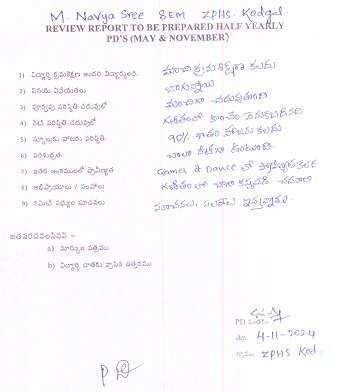 M. Navya Sree 8EM ZPHS. Kodgal
REVIEW REPORT TO BE PREPARED HALF YEARLY
PD'S (MAY & NOVEMBER)
1) విద్యార్థి క్రమశిక్షణ అందరి విద్యార్థులలో, మంచి క్రమశిక్షణ కలదు
2) విషయ విధేయతలు బాగున్నాయి
3) పూర్వపు పరిస్థితి చదువులో మంచిగా చదువుతుంది
4) నేటి పరిస్థితి చదువులో గణితంలో కొంచెం వెనుకబడినది
5) స్కూలుకు హాజరు పరిస్థితి, 90% శాతం హాజరు కలదు
6) పరిశుభ్రత చాలా నీటగా ఉంటుంది.
7) ఇతర అంశములలో ప్రావీణ్యత Games & Dance లో ప్రావీణ్యత కలదు
8) అభిప్రాయాలు / సలహాలు గణితం లో బాగా కష్టపడి చదవాలి
9) కమిటీ సభ్యుల సూచనలు సూచనలు, సలహాలు ఇస్తున్నాము.
జతపరచవలసినవి -
a) మార్కుల పత్రము
b) విద్యార్థి దాతకు వ్రాసిన ఉత్తరము
PD సంతకం
తేది. 4-11-2024
గ్రామం: ZPHS. Kod.